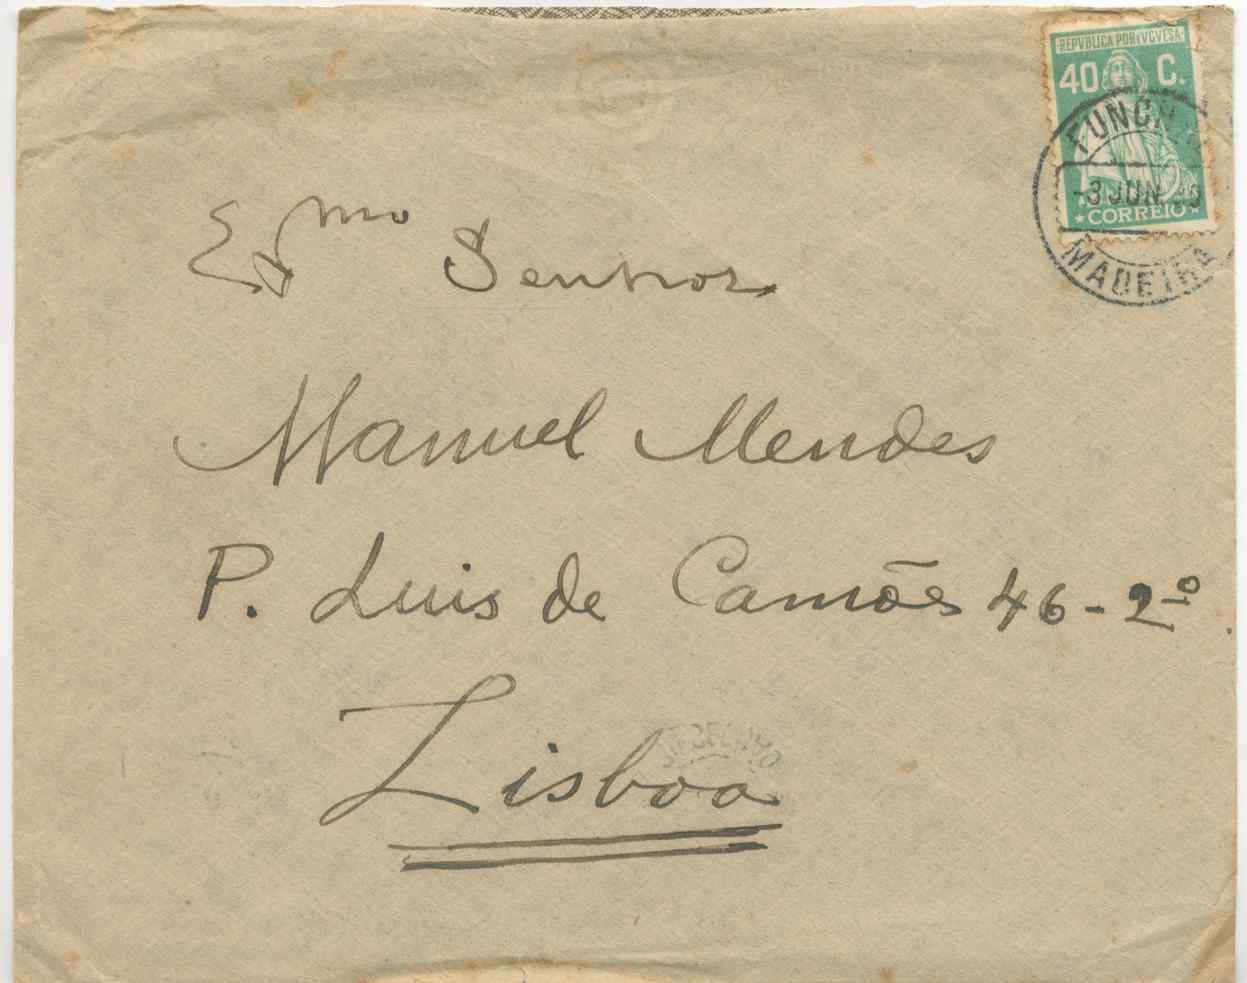 REPVBLICA PORTVGVESA
40 C.
FUNCH
-3 JUN.
CORREIO
MADEIRA
Exmo Senhor
Manuel Mendes
P. Luis de Camões 46-2º.
Lisboa